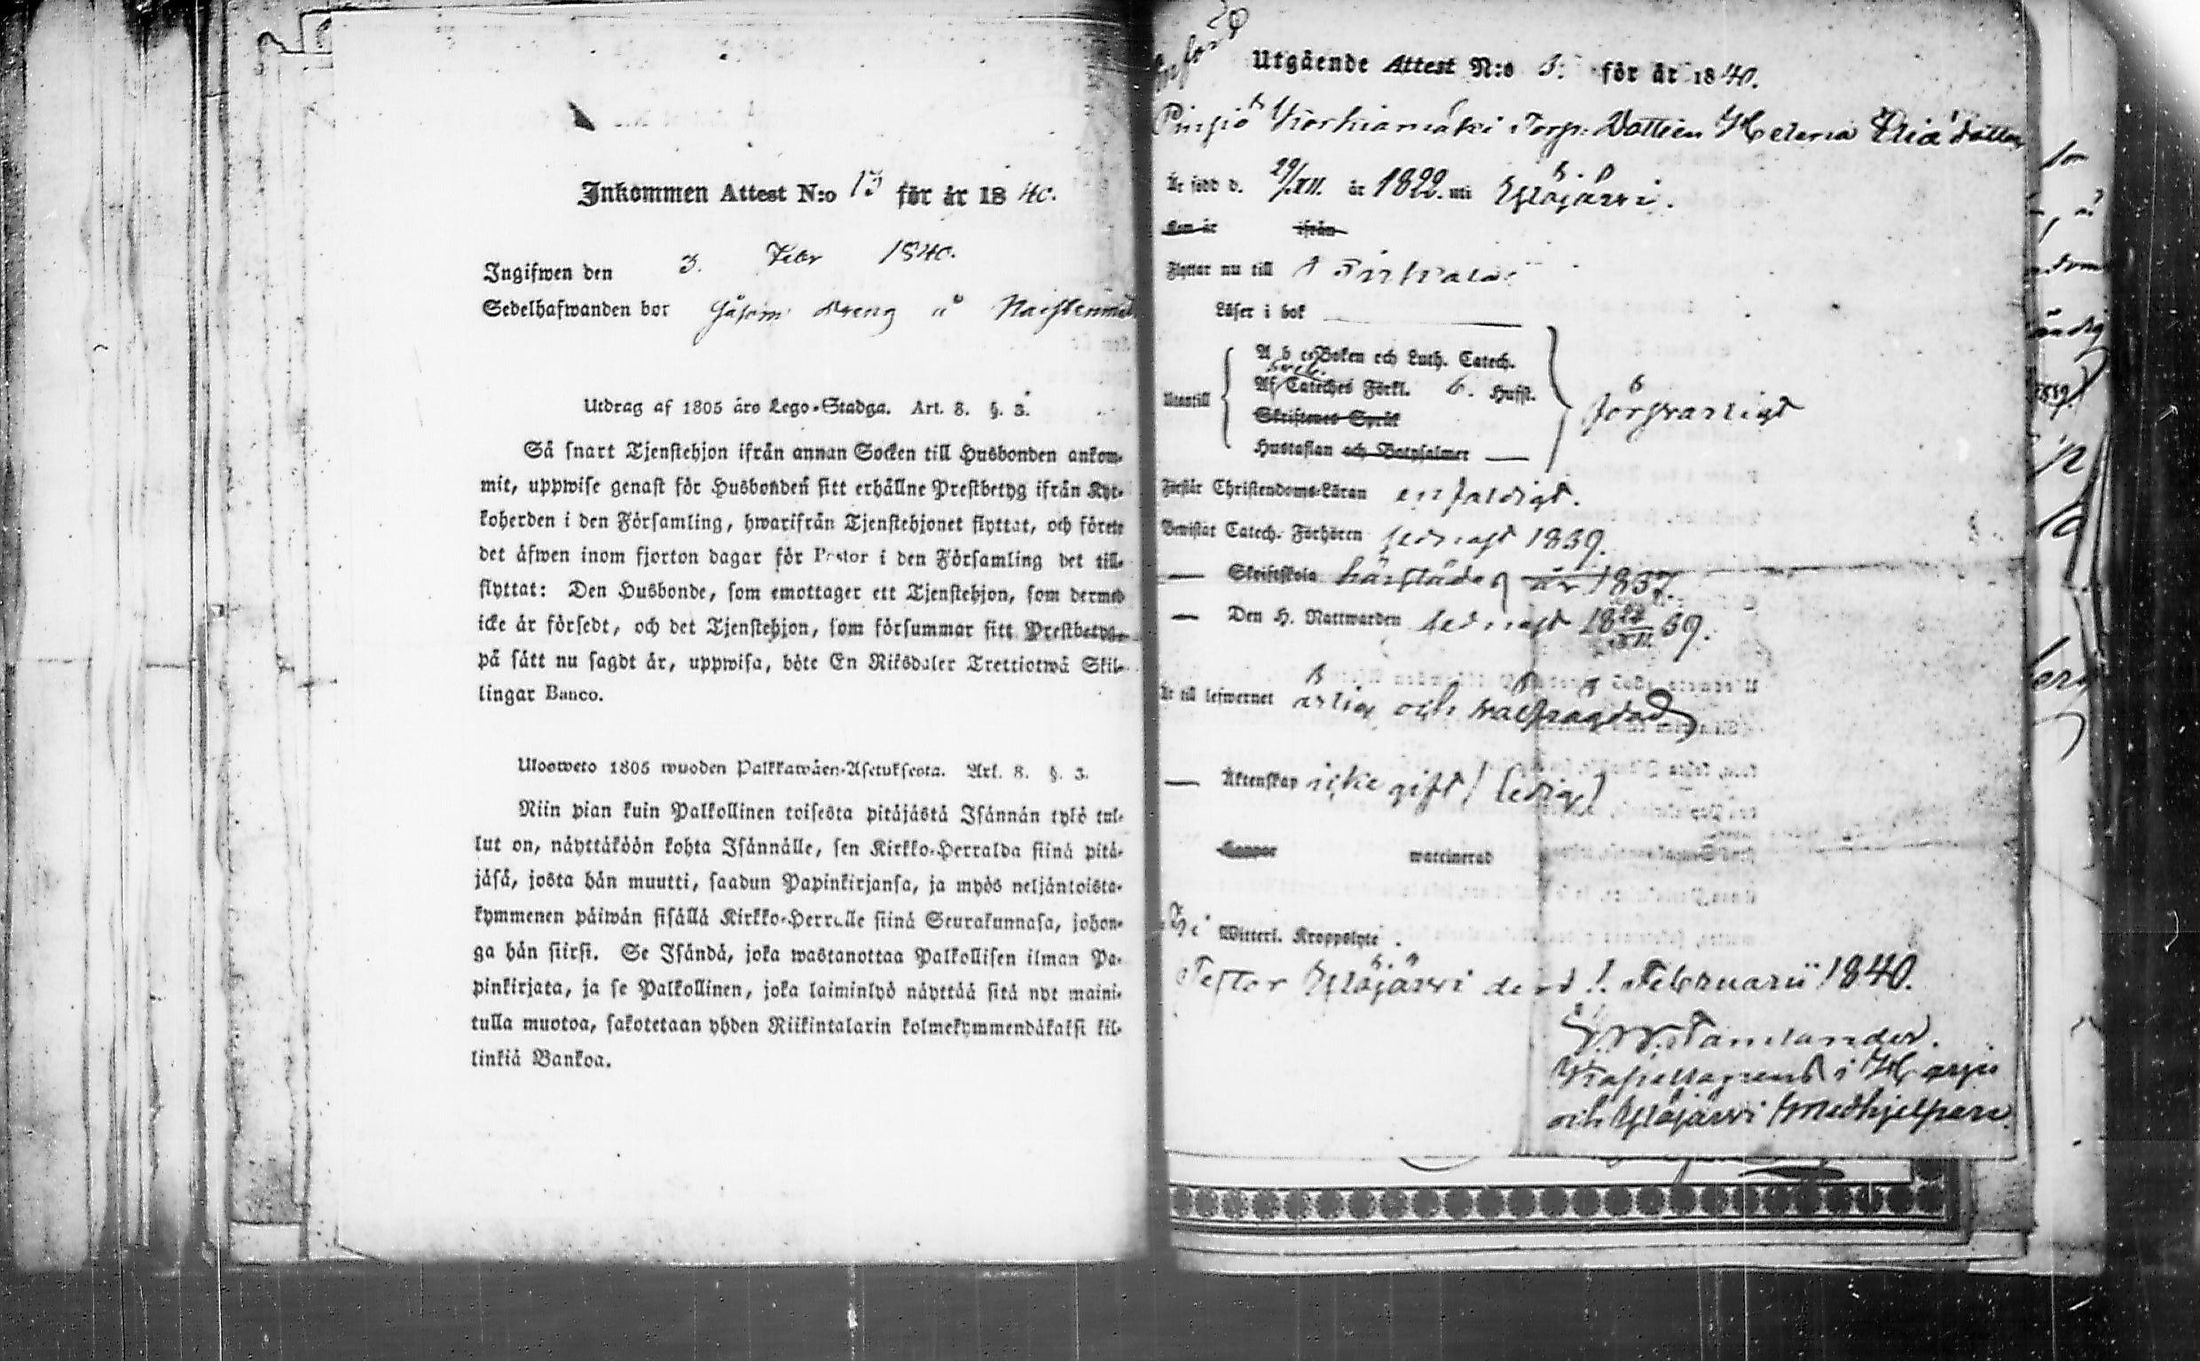 Inkommen Attest N:o 13 för år 1840.
Ingifwen den 3. Febr 1840.
Sedelhafwanden bor såsom dreng å
Utdrag af 1805 års Lego-Stadga. Art. 8. §. 3.
Så snart Tjenstehjon ifrån annan Socken till Husbonden ankom-
mit, uppwise genast för Husbonden sitt erhållne Prestbetyg ifrån Kyr-
koherden i den Församling, hwarifrån Tjenstehjonet flyttat, och förete
det äfwen inom fjorton dagar för Pastor i den Församling det till-
flyttat: Den Husbonde, som emottager ett Tjenstehjon, som dermed
icke är försedt, och det Tjenstehjon, som försummar sitt Prestbetyg,
på sätt nu sagdt är, uppwisa, böte En Riksdaler Trettiotwå Skil-
lingar Banco.
Ulosweto 1805 wuoden Palkkawäen-Asetuksesta. Art. 8. §. 3.
Niin pian kuin Palkollinen toisesta pitäjästä Isännän tykö tul-
lut on, näyttäköön kohta Isännälle, sen Kirkko-Herralda siinä pitä-
jäsä, josta hän muutti, saadun Papinkirjansa, ja myös neljäntoista-
kymmenen päiwän sisällä Kirkko-Herralle siinä Seurakunnasa, johon-
ga hän siirsi. Se Isändä, joka wastanottaa Palkollisen ilman Pa-
pinkirjata, ja se Palkollinen, joka laiminlyö näyttää sitä nyt maini-
tulla muotoa, sakotetaan yhden Riikintalarin kolmekymmendäkaksi kil-
linkiä Bankoa.
Utgående Attest N:o 3. för år 1840.
Pinsiö Torp. Helena
Är född d. 29/XII. år 1822. uti Ylöjärvi.
Hon är ifrån
Flyttar nu till
Läser i bok
A b c-Boken och Luth. Catech.
Utantill Af Cateches Förkl. 6. Hufst. försvarligt
Skriftenes Språk
Hustaflan och Botpsalmer
Förstår Christendoms-Läran enfaldigt.
Bewistat Catech. Förhören sednast 1839.
— Skriftskola härstädes år 1837.
— Den H. Nattwarden sednast 39.
Är till lefwernet ärlig och välfrägdad
— Äktenskap icke gift/ledig/
Koppor waccinerad
Witterl. Kroppslyte.
Testor Ylöjärvi den 1. Februarii 1840.
G. W. Tamlander.
i Harju
och Ylöjärvi medhjelpare.